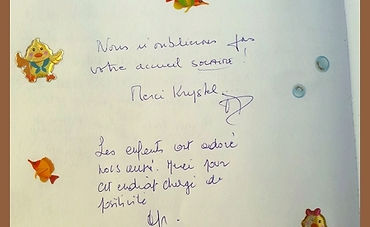 Nous n'oublierons pas
votre accueil SOLAIRE !
Merci Krystel
Les enfants ont adoré
nous aussi. Merci pour
cet endroit chargé de
positivité